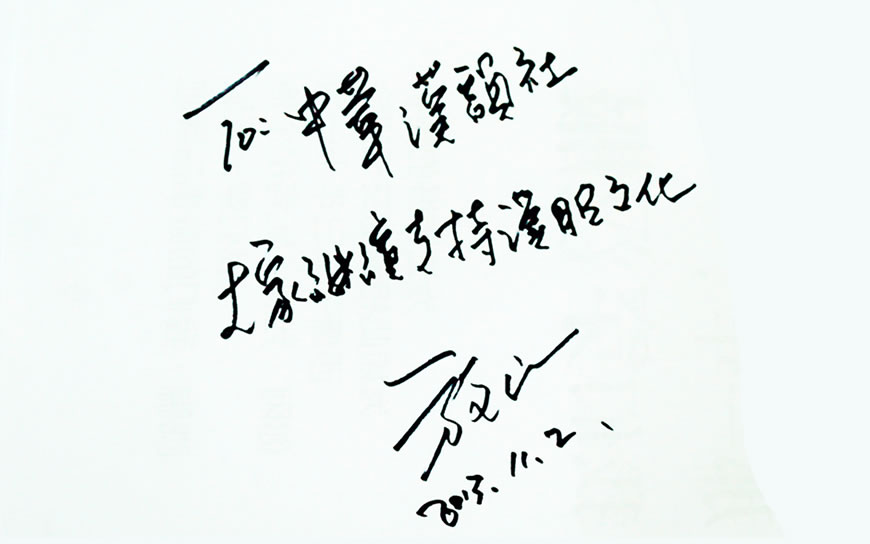 To: 中華漢韻社
大家继續支持漢服文化
方文山
2013.11.2